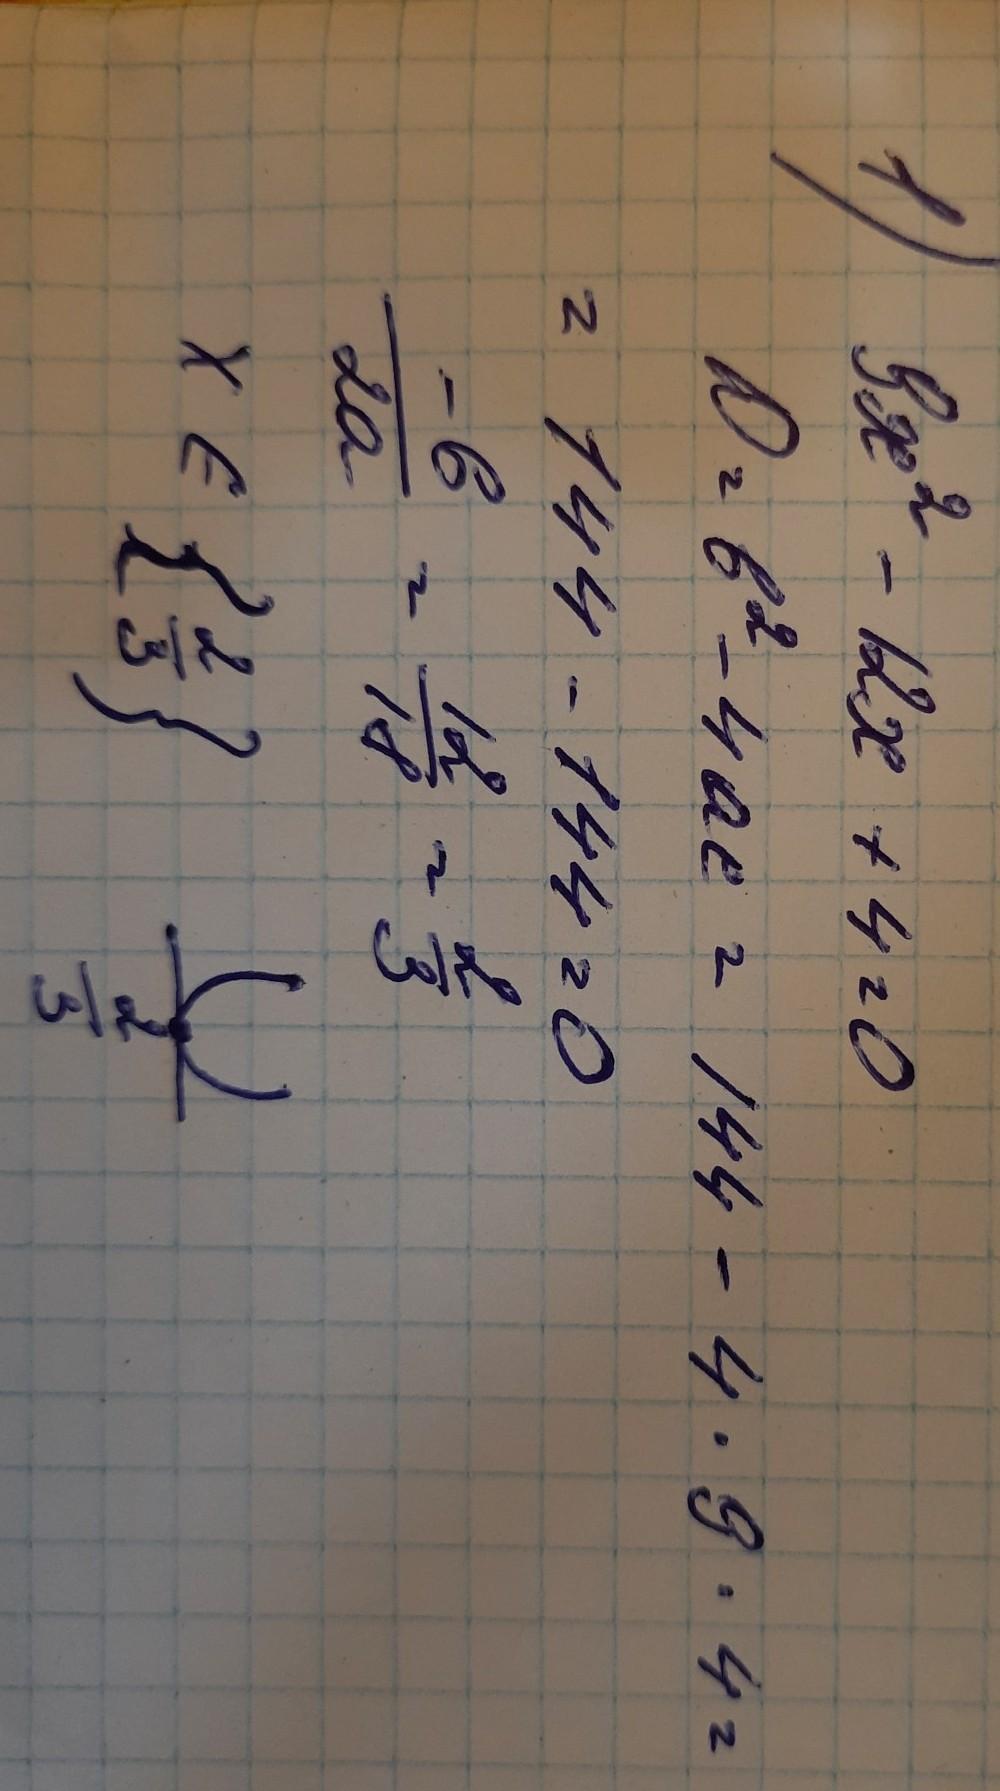 1) 9x² - 12x + 4 = 0
D = b² - 4ac = 144 - 4 · 9 · 4 =
= 144 - 144 = 0
-b/2a = 12/18 = 2/3
x ∈ {2/3}
2/3